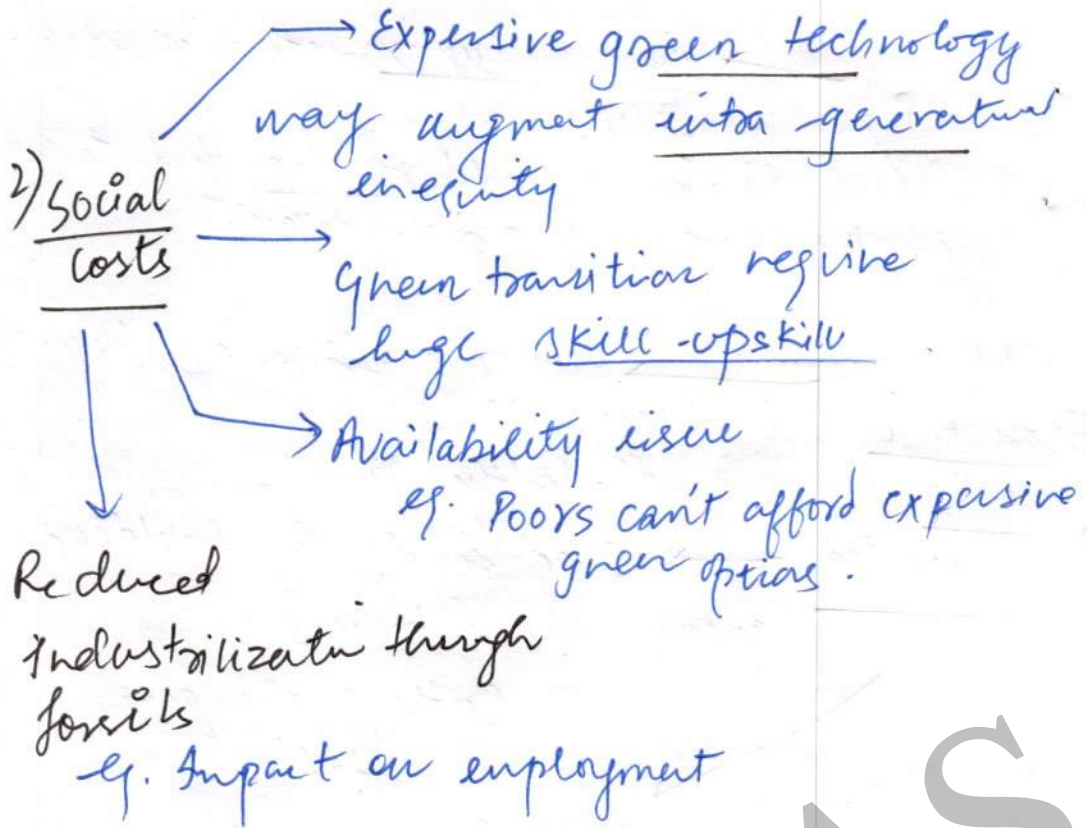 Expensive green technology
may augment intra-generational
inequity
2) Social
costs
Green transition require
huge skill-upskill
Availability issue
eg. Poors can't afford expensive
green options.
Reduced
industrilization through
fossils
eg. Impact on employment
S